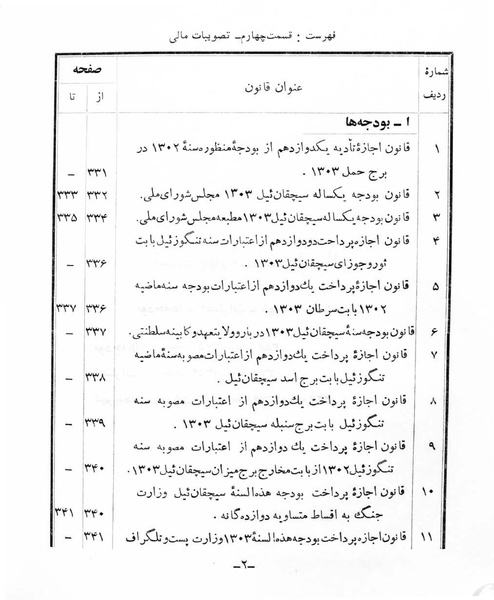 فهرست : قسمت چهارم ـ تصویبات مالی
شمارهٔ ردیف	عنوان قانون	صفحه از	تا
۱ ـ بودجه‌ها
۱	قانون اجازهٔ تأدیه یکدوازدهم از بودجهٔ منظوره سنهٔ ۱۳۰۲ در
برج حمل ۱۳۰۳ .	۳۳۱	ـ
۲	قانون بودجه یکساله سیچقان ئیل ۱۳۰۳ مجلس شورای ملی.	۳۳۲	۳۳۳
۳	قانون بودجه یکساله سیچقان ئیل ۱۳۰۳ مطبعه مجلس شورای ملی.	۳۳۴	۳۳۵
۴	قانون اجازه پرداخت دودوازدهم از اعتبارات سنه تنگوزئیل بابت
ثور و جوزای سیچقان ئیل ۱۳۰۳ .	۳۳۶	ـ
۵	قانون اجازهٔ پرداخت یك دوازدهم از اعتبارات بودجه سنه ماضیه
۱۳۰۲ بابت سرطان ۱۳۰۳ .	۳۳۶	۳۳۷
۶	قانون بودجه سنهٔ سیچقان ئیل ۱۳۰۳ دربار و ولایتعهد و کابینه سلطنتی.	۳۳۷	ـ
۷	قانون اجازهٔ پرداخت یك دوازدهم از اعتبارات مصوبه سنهٔ ماضیه
تنگوزئیل بابت برج اسد سیچقان ئیل .	۳۳۸	ـ
۸	قانون اجازهٔ پرداخت یك دوازدهم از اعتبارات مصوبه سنه
تنگوزئیل بابت برج سنبله سیچقان ئیل ۱۳۰۳ .	۳۳۹	ـ
۹	قانون اجازهٔ پرداخت یك دوازدهم از اعتبارات مصوبه سنه
تنگوزئیل ۱۳۰۲ از بابت مخارج برج میزان سیچقان ئیل ۱۳۰۳.	۳۴۰	ـ
۱۰	قانون اجازهٔ پرداخت بودجه هذه السنهٔ سیچقان ئیل وزارت
جنگ به اقساط متساویه دوازده گانه .	۳۴۰	۳۴۱
۱۱	قانون اجازه پرداخت بودجه هذه السنهٔ ۱۳۰۳ وزارت پست و تلگراف	۳۴۱	ـ
ـ۲ـ